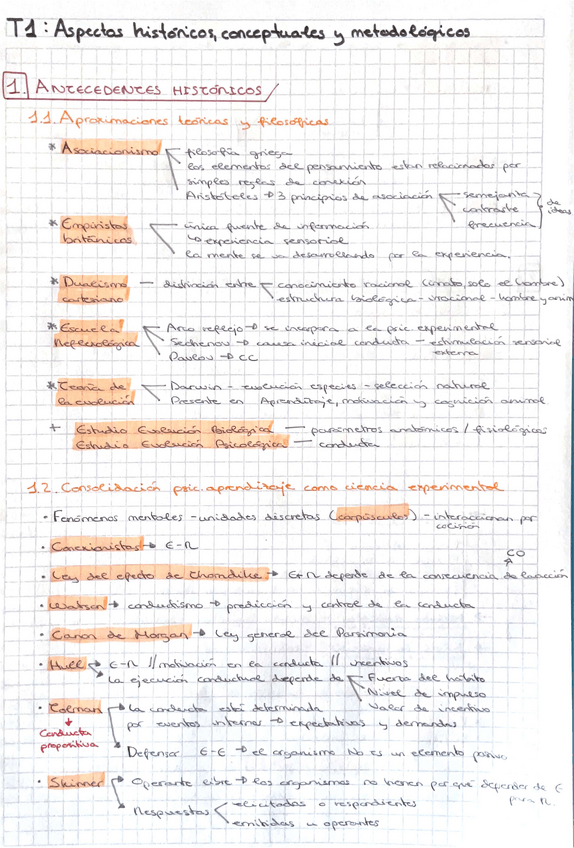 T1: Aspectos históricos, conceptuales y metodológicos
1. ANTECEDENTES HISTÓRICOS
1.1. Aproximaciones teóricas y filosóficas
* Asociacionismo filosofía griega
los elementos del pensamiento estan relacionados por
simples reglas de conexión
Aristóteles → 3 principios de asociación semejanza
contraste
frecuencia
de ideas
* Empiristas única fuente de información
británicos La experiencia sensorial
la mente se va desarrollando por la experiencia.
* Dualismo — distinción entre conocimiento racional (innato, solo el hombre)
cartesiano estructura biológica - irracional - hombre y anim
* Escuela Arco reflejo → se incorpora a la psic experimental
Reflexológica Sechenov → causa inicial conducta — estimulación sensorial
externa
Pavlov → CC
* Teoría de Darwin - evolución especies - selección natural
la evolución Presente en Aprendizaje, motivación y cognición animal
+ Estudio Evolución Biológica — parámetros anatómicos / fisiológicos
Estudio Evolución Psicológica — conducta
1.2. Consolidación psic. aprendizaje como ciencia experimental
· Fenómenos mentales - unidades discretas (corpúsculos) - interaccionan por
colisión
· Conexionistas → E-R
CO
· Ley del efecto de Thorndike → E+R depende de la consecuencia de la acción
· Watson → conductismo → predicción y control de la conducta
· Canon de Morgan → Ley general del Parsimonia
· Hull → E-R // motivación en la conducta // incentivos
La ejecución conductual depende de Fuerza del hábito
Nivel de impulso
Valor de incentivo
· Tolman La conducta está determinada
por eventos internos → expectativas y demandas
Conducta
propositiva
Defensor E-E → el organismo No es un elemento pasivo
· Skinner Operante libre → los organismos no tienen por qué depender de E
para R.
Respuestas elicitadas o respondientes
emitidas u operantes